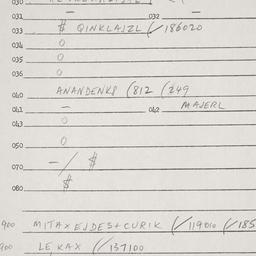 030
031 – 032 –
033 $ QINKLAJZL (/186020
034 0
035 0
036 0
040 ANANDENKS (812 (249
041 – 042 MAJERL
043 0
050 0
070 –/ $
080 $
900 MITAXEJDES+CURIK (/119010 (/185
900 LE KAX (/137100